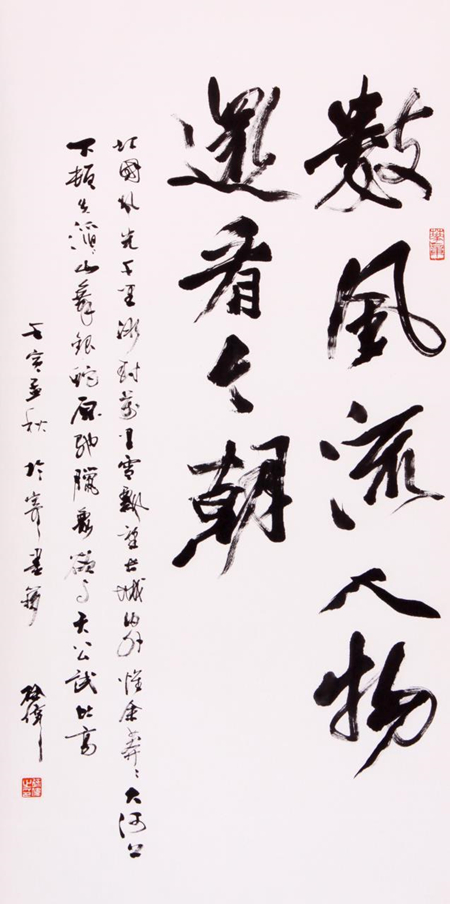 數風流人物
還看今朝
北國風光千里冰封萬里雪飄望長城內外惟余莽〻大河上
下頓失滔〻山舞銀蛇原馳臘象欲与天公試比高
壬寅孟秋於